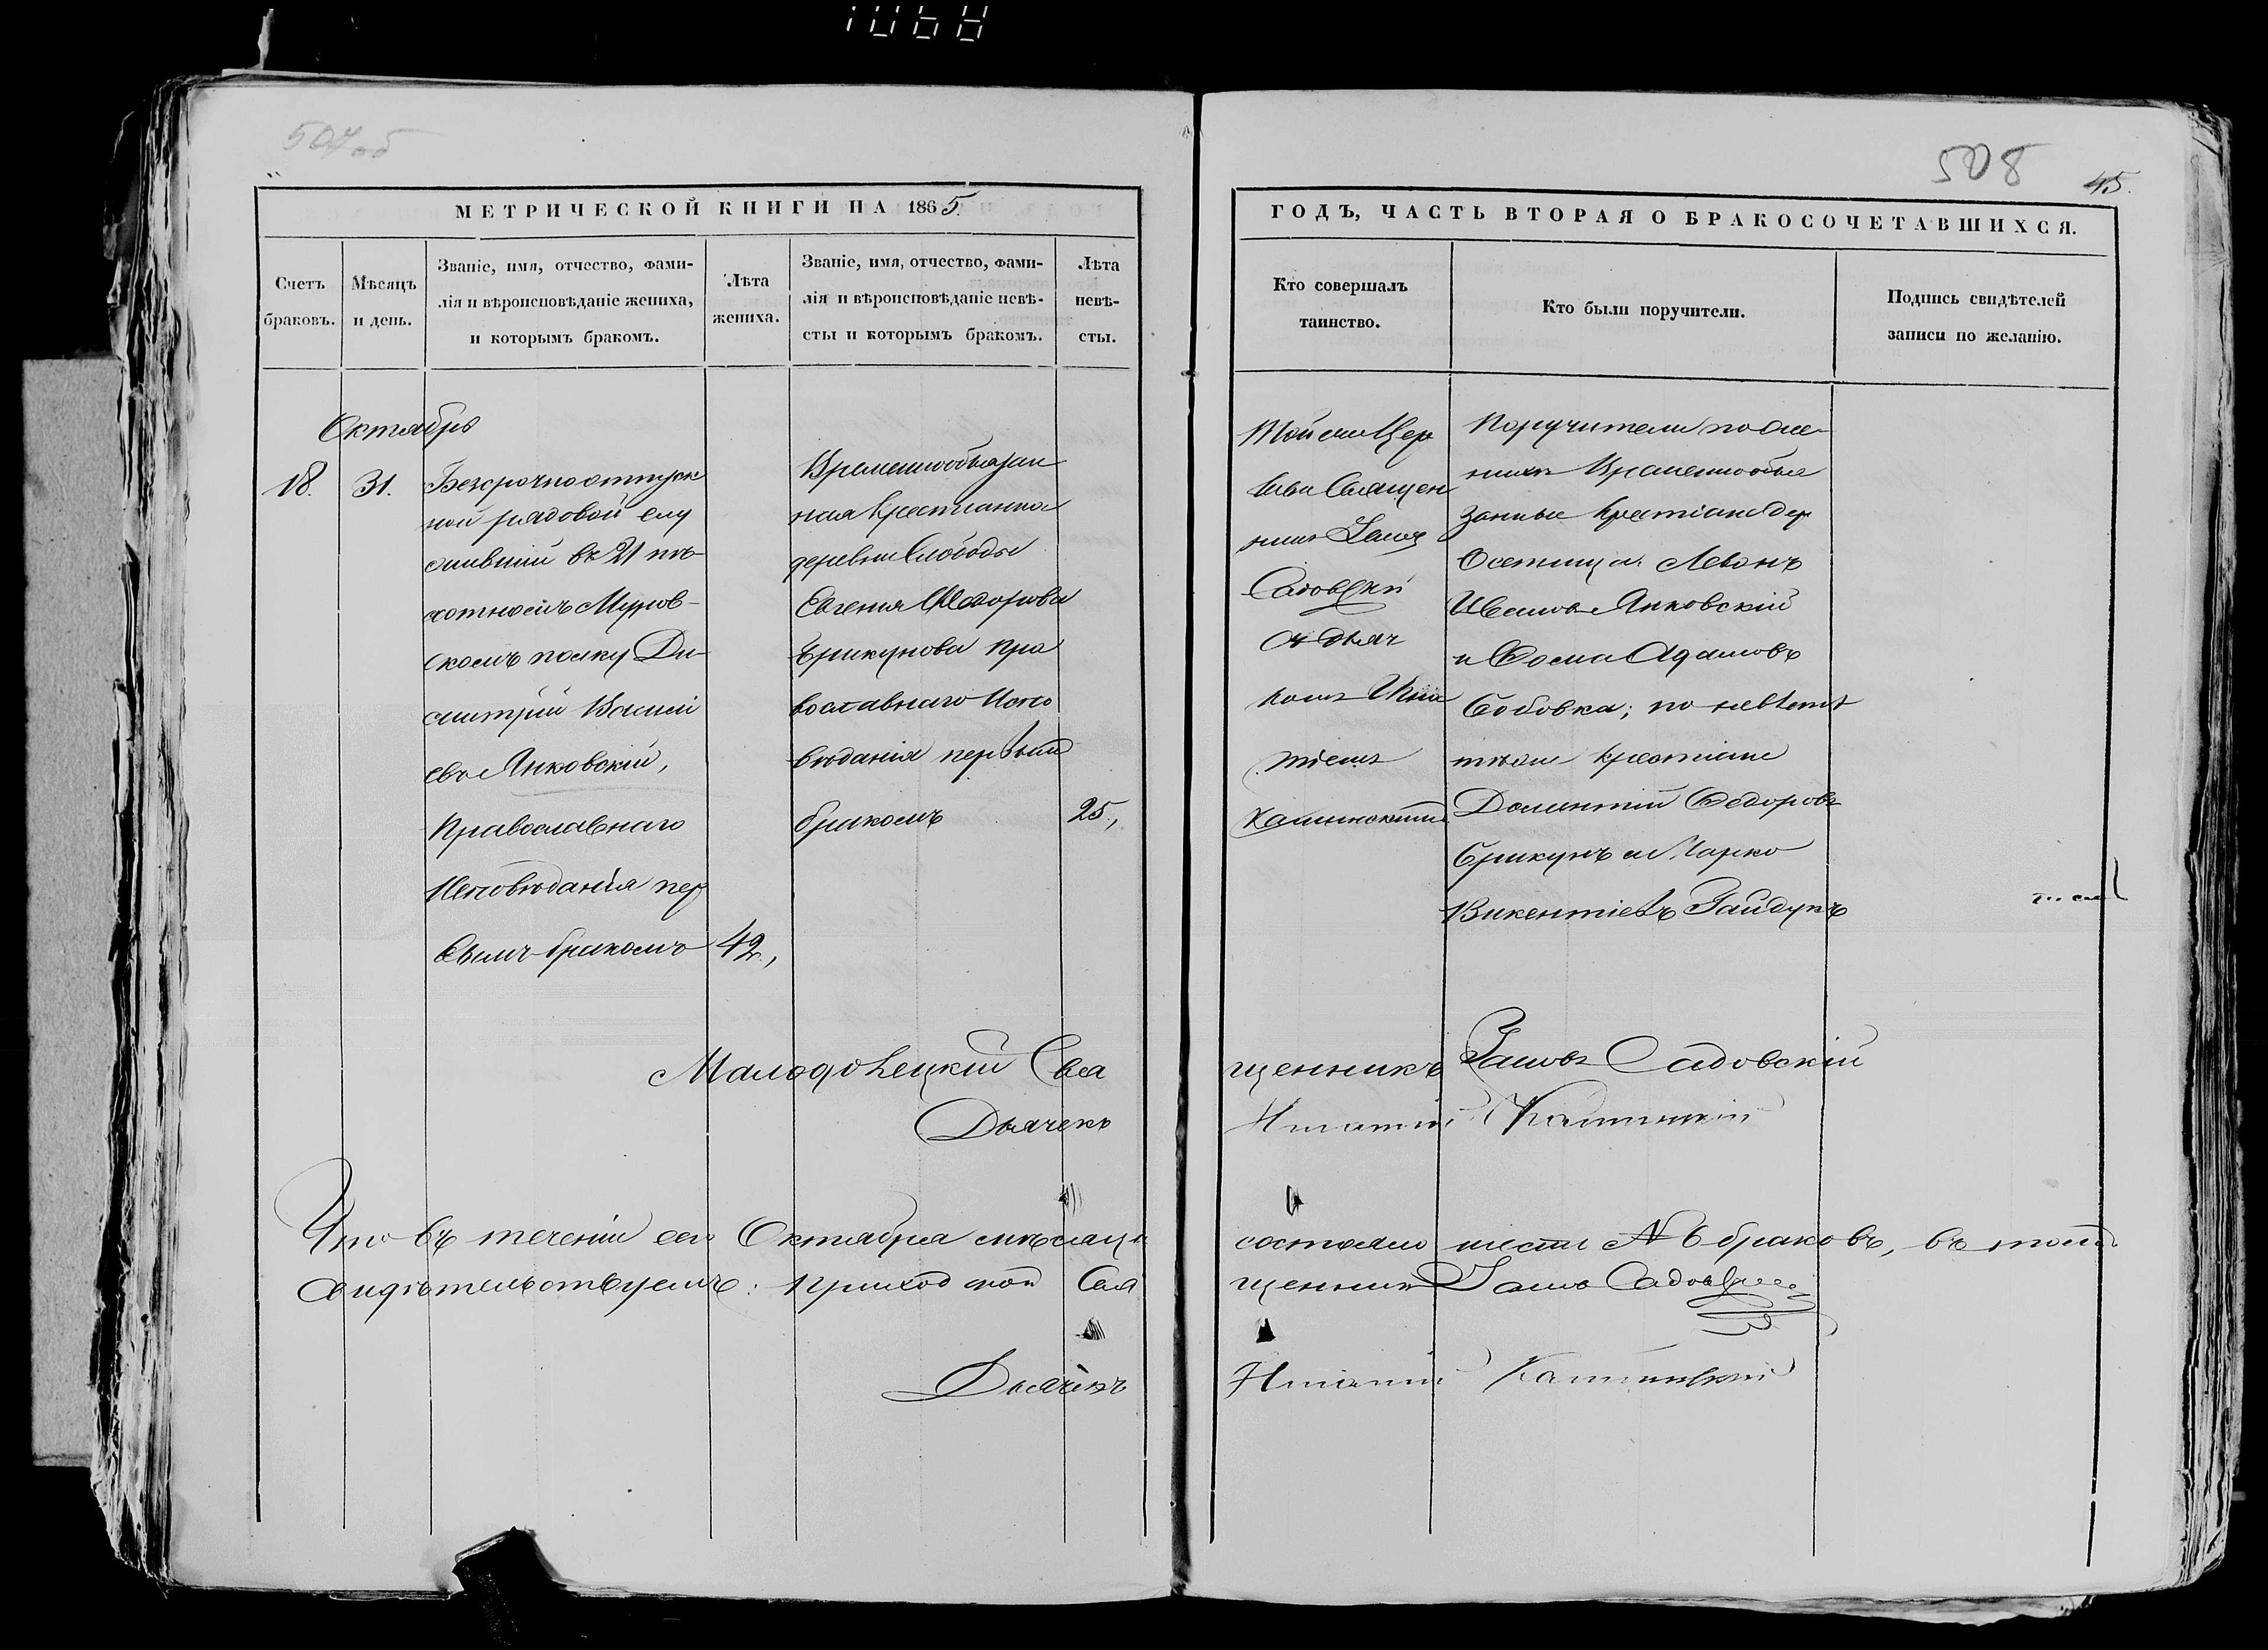 1068
507об
508
45.
МЕТРИЧЕСКОЙ КНИГИ НА 1865
ГОДЪ, ЧАСТЬ ВТОРАЯ О БРАКОСОЧЕТАВШИХСЯ.
Счетъ
браковъ.
Мѣсяцъ
и день.
Званіе, имя, отчество, фами-
лія и вѣроисповѣданіе жениха,
и которымъ бракомъ.
Лѣта
жениха.
Званіе, имя, отчество, фами-
лія и вѣроисповѣданіе невѣ-
сты и которымъ бракомъ.
Лѣта
невѣ-
сты.
Кто совершалъ
таинство.
Кто были поручители.
Подпись свидѣтелей
записи по желанію.
Октябрь
18.
31.
Безсрочноотпуск
ной рядовой слу
жившій въ 21 пѣ-
хотномъ Муром-
скомъ полку Ди-
митрій Василі
евъ Янковскій,
Православнаго
Исповѣданія пер
вымъ бракомъ
42,
Временнообязан
ная крестьянка
деревни Слободы
Евгенія Ѳедорова
Брикунова Пра
вославнаго Испо
вѣданія первымъ
бракомъ
25,
Той же Цер
кви Священ
никъ Іаковъ
Садовскій
съ дьяч
комъ Игна
тіемъ
Поручители по же-
нихѣ Временнообя
занные крестьяне дер
Осетища Леонъ
Ивановъ Янковскій
и Ѳома Адамовъ
Бобовка; по невѣстѣ
крестьяне
Дементій Ѳедоровъ
Брикунъ и Марко
Викентіевъ Гайдукъ
Свя
щенникъ Іаковъ Садовскій
Дьячекъ
Игнатій
Что въ теченіи сего Октября мѣсяца состояло шесть № 6 браковъ, въ томъ
свидѣтельствуемъ: Приходской Свя
щенникъ Іаковъ Садовскій
Дьячекъ
Игнатій